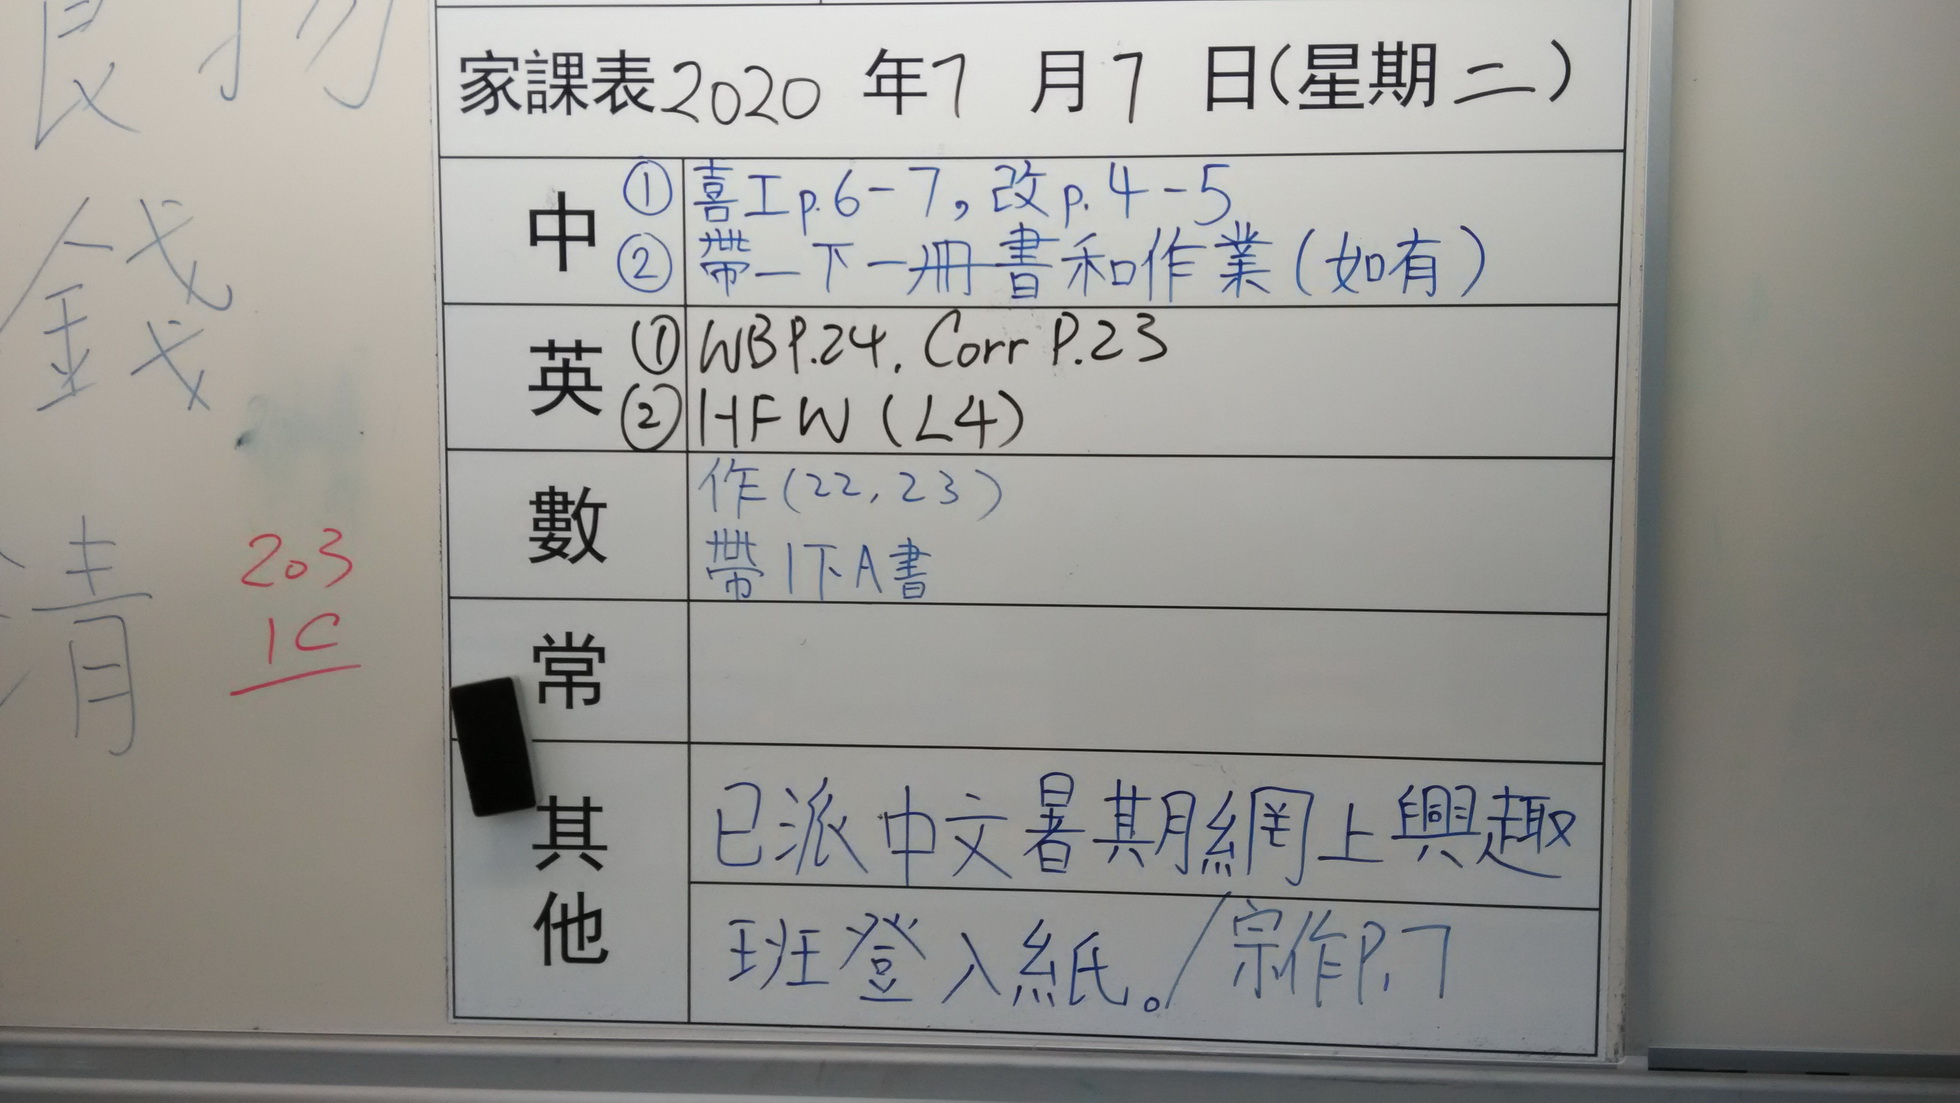 家課表2020年7月7日(星期二)
中
① 喜工p.6-7,改p.4-5
② 帶一下一冊書和作業(如有)
英
① WB P.24, Corr P.23
② HFW (L4)
數
作(22,23)
帶1下A書
常
其他
已派中文暑期網上興趣
班登入紙。/宗作P.7
錢
清
203
1C